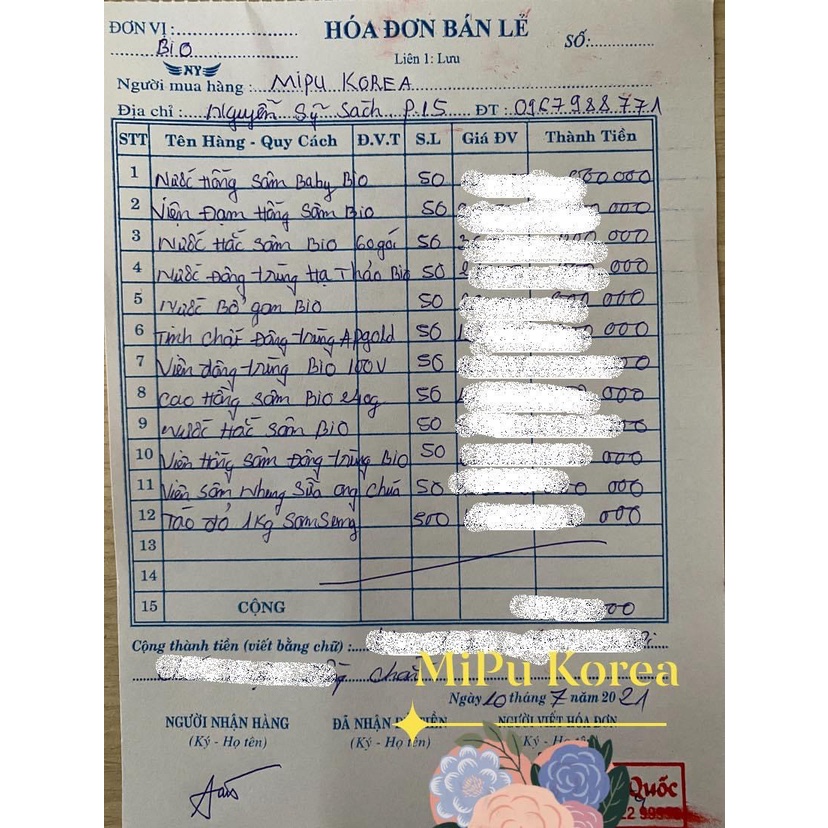 ĐƠN VỊ : HÓA ĐƠN BÁN LẺ SỐ:
BIO Liên 1: Lưu
NY
Người mua hàng : MIPU KOREA
Địa chỉ : Nguyễn Sỹ Sách P.15 ĐT : 0967988771
STT Tên Hàng - Quy Cách Đ.V.T S.L Giá ĐV Thành Tiền
1 Nước Hồng Sâm Baby Bio 50 000000
2 Viên Đạm Hồng Sâm Bio 50 000
3 Nước Hắc Sâm Bio 60 gói 50 000
4 Nước Đông Trùng Hạ Thảo Bio 50 000
5 Nước Bổ gan Bio 50 000
6 Tinh chất Đông trùng APgold 50 000
7 Viên đông trùng Bio 100V 50 0
8 Cao Hồng Sâm Bio 240g 50 000
9 Nước Hắc Sâm Bio 50 00
10 Viên Hồng Sâm Đông trùng Bio 50 000
11 Viên Sâm Nhung Sữa ong chúa 50 000
12 Táo đỏ 1Kg SamSung 500 000
13
14
15 CỘNG 00
Cộng thành tiền (viết bằng chữ) :
chẵn
MiPu Korea
Ngày 10 tháng 7 năm 2021
NGƯỜI NHẬN HÀNG ĐÃ NHẬN ĐỦ TIỀN NGƯỜI VIẾT HÓA ĐƠN
(Ký - Họ tên) (Ký - Họ tên) (Ký - Họ tên)
Quốc